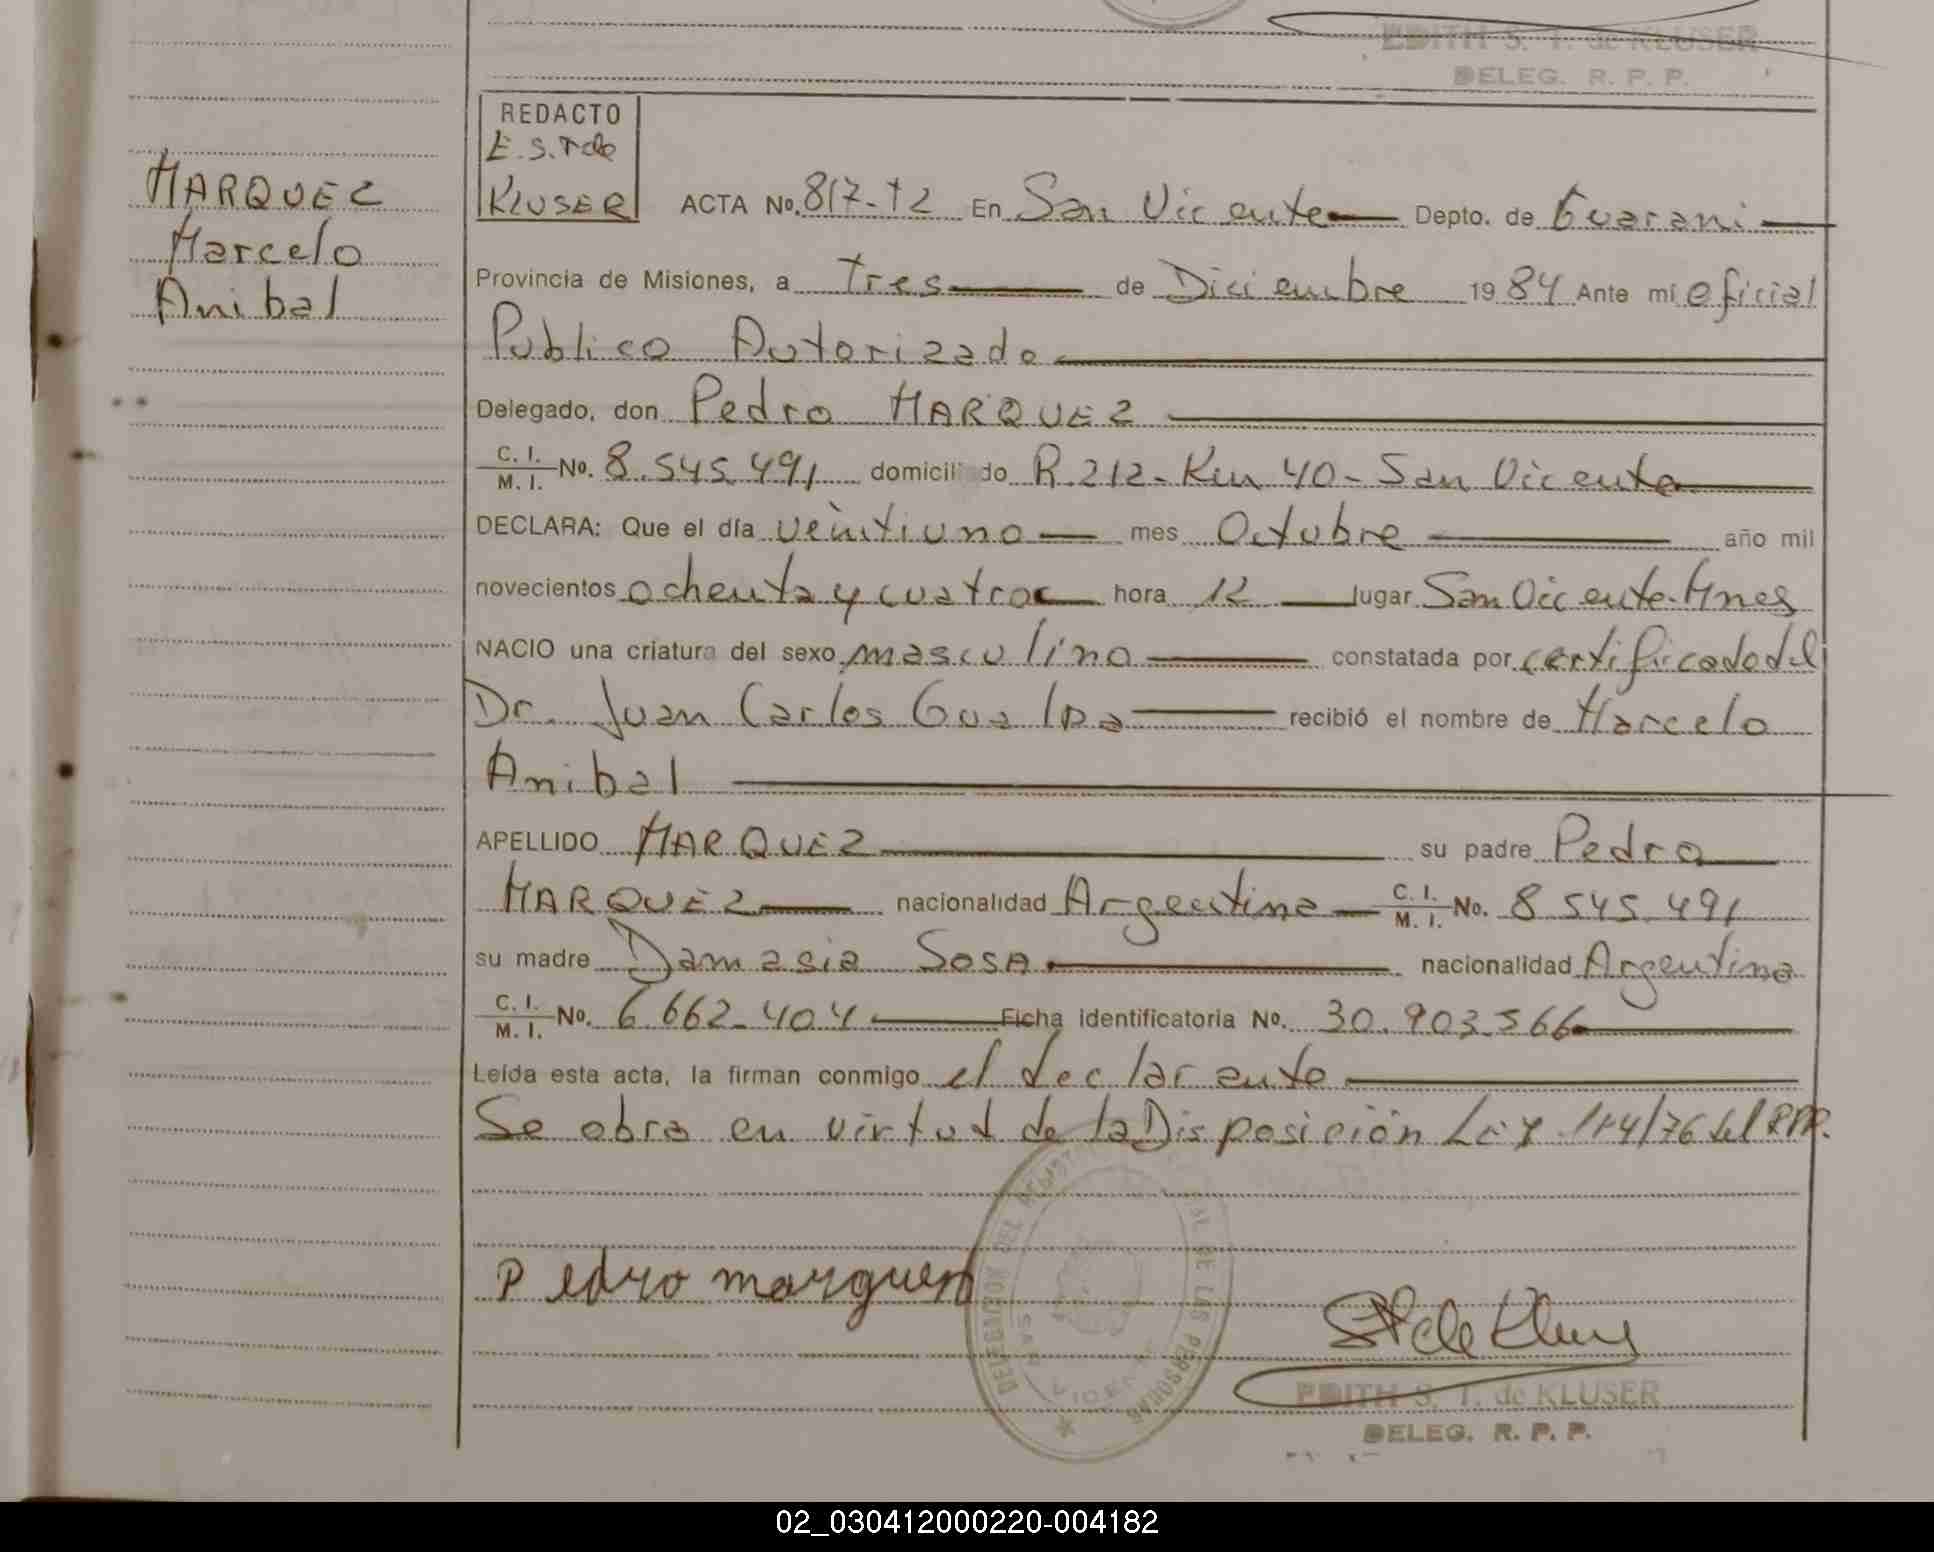 EDITH S. T. de KLUSER
DELEG. R. P. P.
MARQUEZ
Marcelo
Anibal
REDACTO
E.S.T de
KLUSER
ACTA No. 817-T2 En San Vicente Depto. de Guarani
Provincia de Misiones, a Tres de Diciembre 1984 Ante mi oficial
Publico Autorizado
Delegado, don Pedro MARQUEZ
C. I. M. I. No. 8.545.491 domiciliado R.212-Km 40-San Vicente
DECLARA: Que el día veintiuno mes Octubre año mil
novecientos ochenta y cuatro hora 12 lugar San Vicente-Mnes
NACIO una criatura del sexo masculino constatada por certificado del
Dr. Juan Carlos Gualpa recibió el nombre de Marcelo
Anibal
APELLIDO MARQUEZ su padre Pedro
MARQUEZ nacionalidad Argentina C. I. M. I. No. 8.545.491
su madre Damasia SOSA nacionalidad Argentina
C. I. M. I. No. 6.662.404 Ficha identificatoria No. 30.903.566
Leída esta acta, la firman conmigo el declarante
Se obra en virtud de la Disposición Ley 114/76 del RPP.
Pedro marquez
DELEGACION DEL REGISTRO DE LAS PERSONAS
EDITH S. T. de KLUSER
DELEG. R. P. P.
02_030412000220-004182